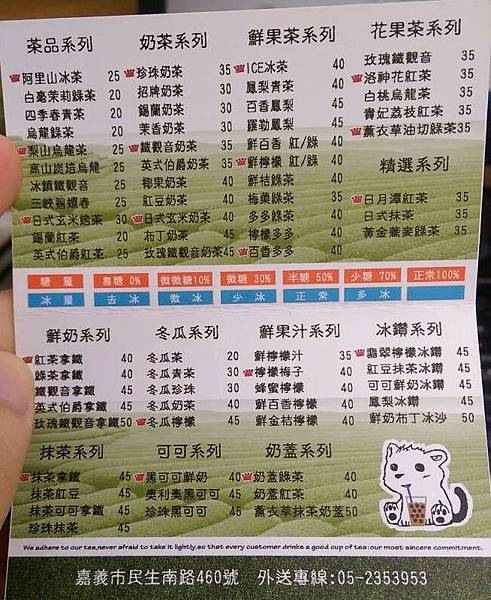 茶品系列
阿里山冰茶 25
白毫茉莉綠茶 20
四季春青茶 20
烏龍綠茶 20
梨山烏龍茶 25
高山炭培烏龍 25
冰鎮鐵觀音 25
三峽碧螺春 25
日式玄米煎茶 30
錫蘭紅茶 20
英式伯爵紅茶 20
奶茶系列
珍珠奶茶 35
招牌奶茶 30
錫蘭奶茶 30
茉香奶茶 30
鐵觀音奶茶 35
英式伯爵奶茶 35
椰果奶茶 40
紅豆奶茶 40
日式玄米奶茶 40
布丁奶茶 45
玫瑰鐵觀音奶茶45
鮮果茶系列
ICE冰茶 40
鳳梨青茶 40
百香鳳梨 45
羅勒鳳梨 45
鮮百香 紅/綠 40
鮮檸檬 紅/綠 40
鮮桔綠茶 40
梅菓綠茶 35
多多綠茶 40
檸檬多多 40
百香多多 40
花果茶系列
玫瑰鐵觀音 35
洛神花紅茶 35
白桃烏龍茶 35
貴妃荔枝紅茶 35
薰衣草油切綠茶35
精選系列
日月潭紅茶 35
日式抹茶 35
黃金蕎麥綠茶 35
糖量 無糖 0% 微微糖10% 微糖 30% 半糖 50% 少糖 70% 正常100%
冰量 去冰 微冰 少冰 正常 多冰
鮮奶系列
紅茶拿鐵 40
綠茶拿鐵 40
鐵觀音拿鐵 45
英式伯爵拿鐵 45
玫瑰鐵觀音拿鐵50
冬瓜系列
冬瓜茶 20
冬瓜青茶 30
冬瓜珍珠 30
冬瓜奶茶 40
冬瓜檸檬 40
鮮果汁系列
鮮檸檬汁 35
檸檬梅子 40
蜂蜜檸檬 40
鮮百香檸檬 40
鮮金桔檸檬 40
冰鑽系列
翡翠檸檬冰鑽 45
紅豆抹茶冰鑽 45
可可鮮奶冰鑽 45
鳳梨冰鑽 45
鮮奶布丁冰沙 50
抹茶系列
抹茶拿鐵 45
抹茶紅豆 45
抹茶可可拿鐵 45
珍珠抹茶 45
可可系列
黑可可鮮奶 40
奧利奧黑可可 45
珍珠黑可可 45
奶蓋系列
奶蓋綠茶 40
奶蓋紅茶 40
薰衣草抹茶奶蓋50
We adhere to our tea,never afraid to take it lightly,so that every customer drinks a good cup of tea:our most sincere commitment.
嘉義市民生南路460號 外送專線:05-2353953